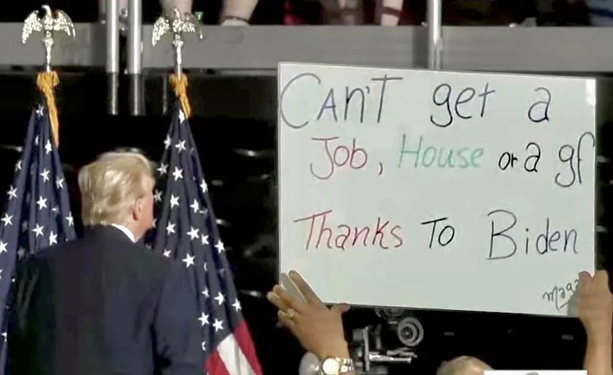 CAn'T get a
Job, House or a gf
Thanks To Biden
maga